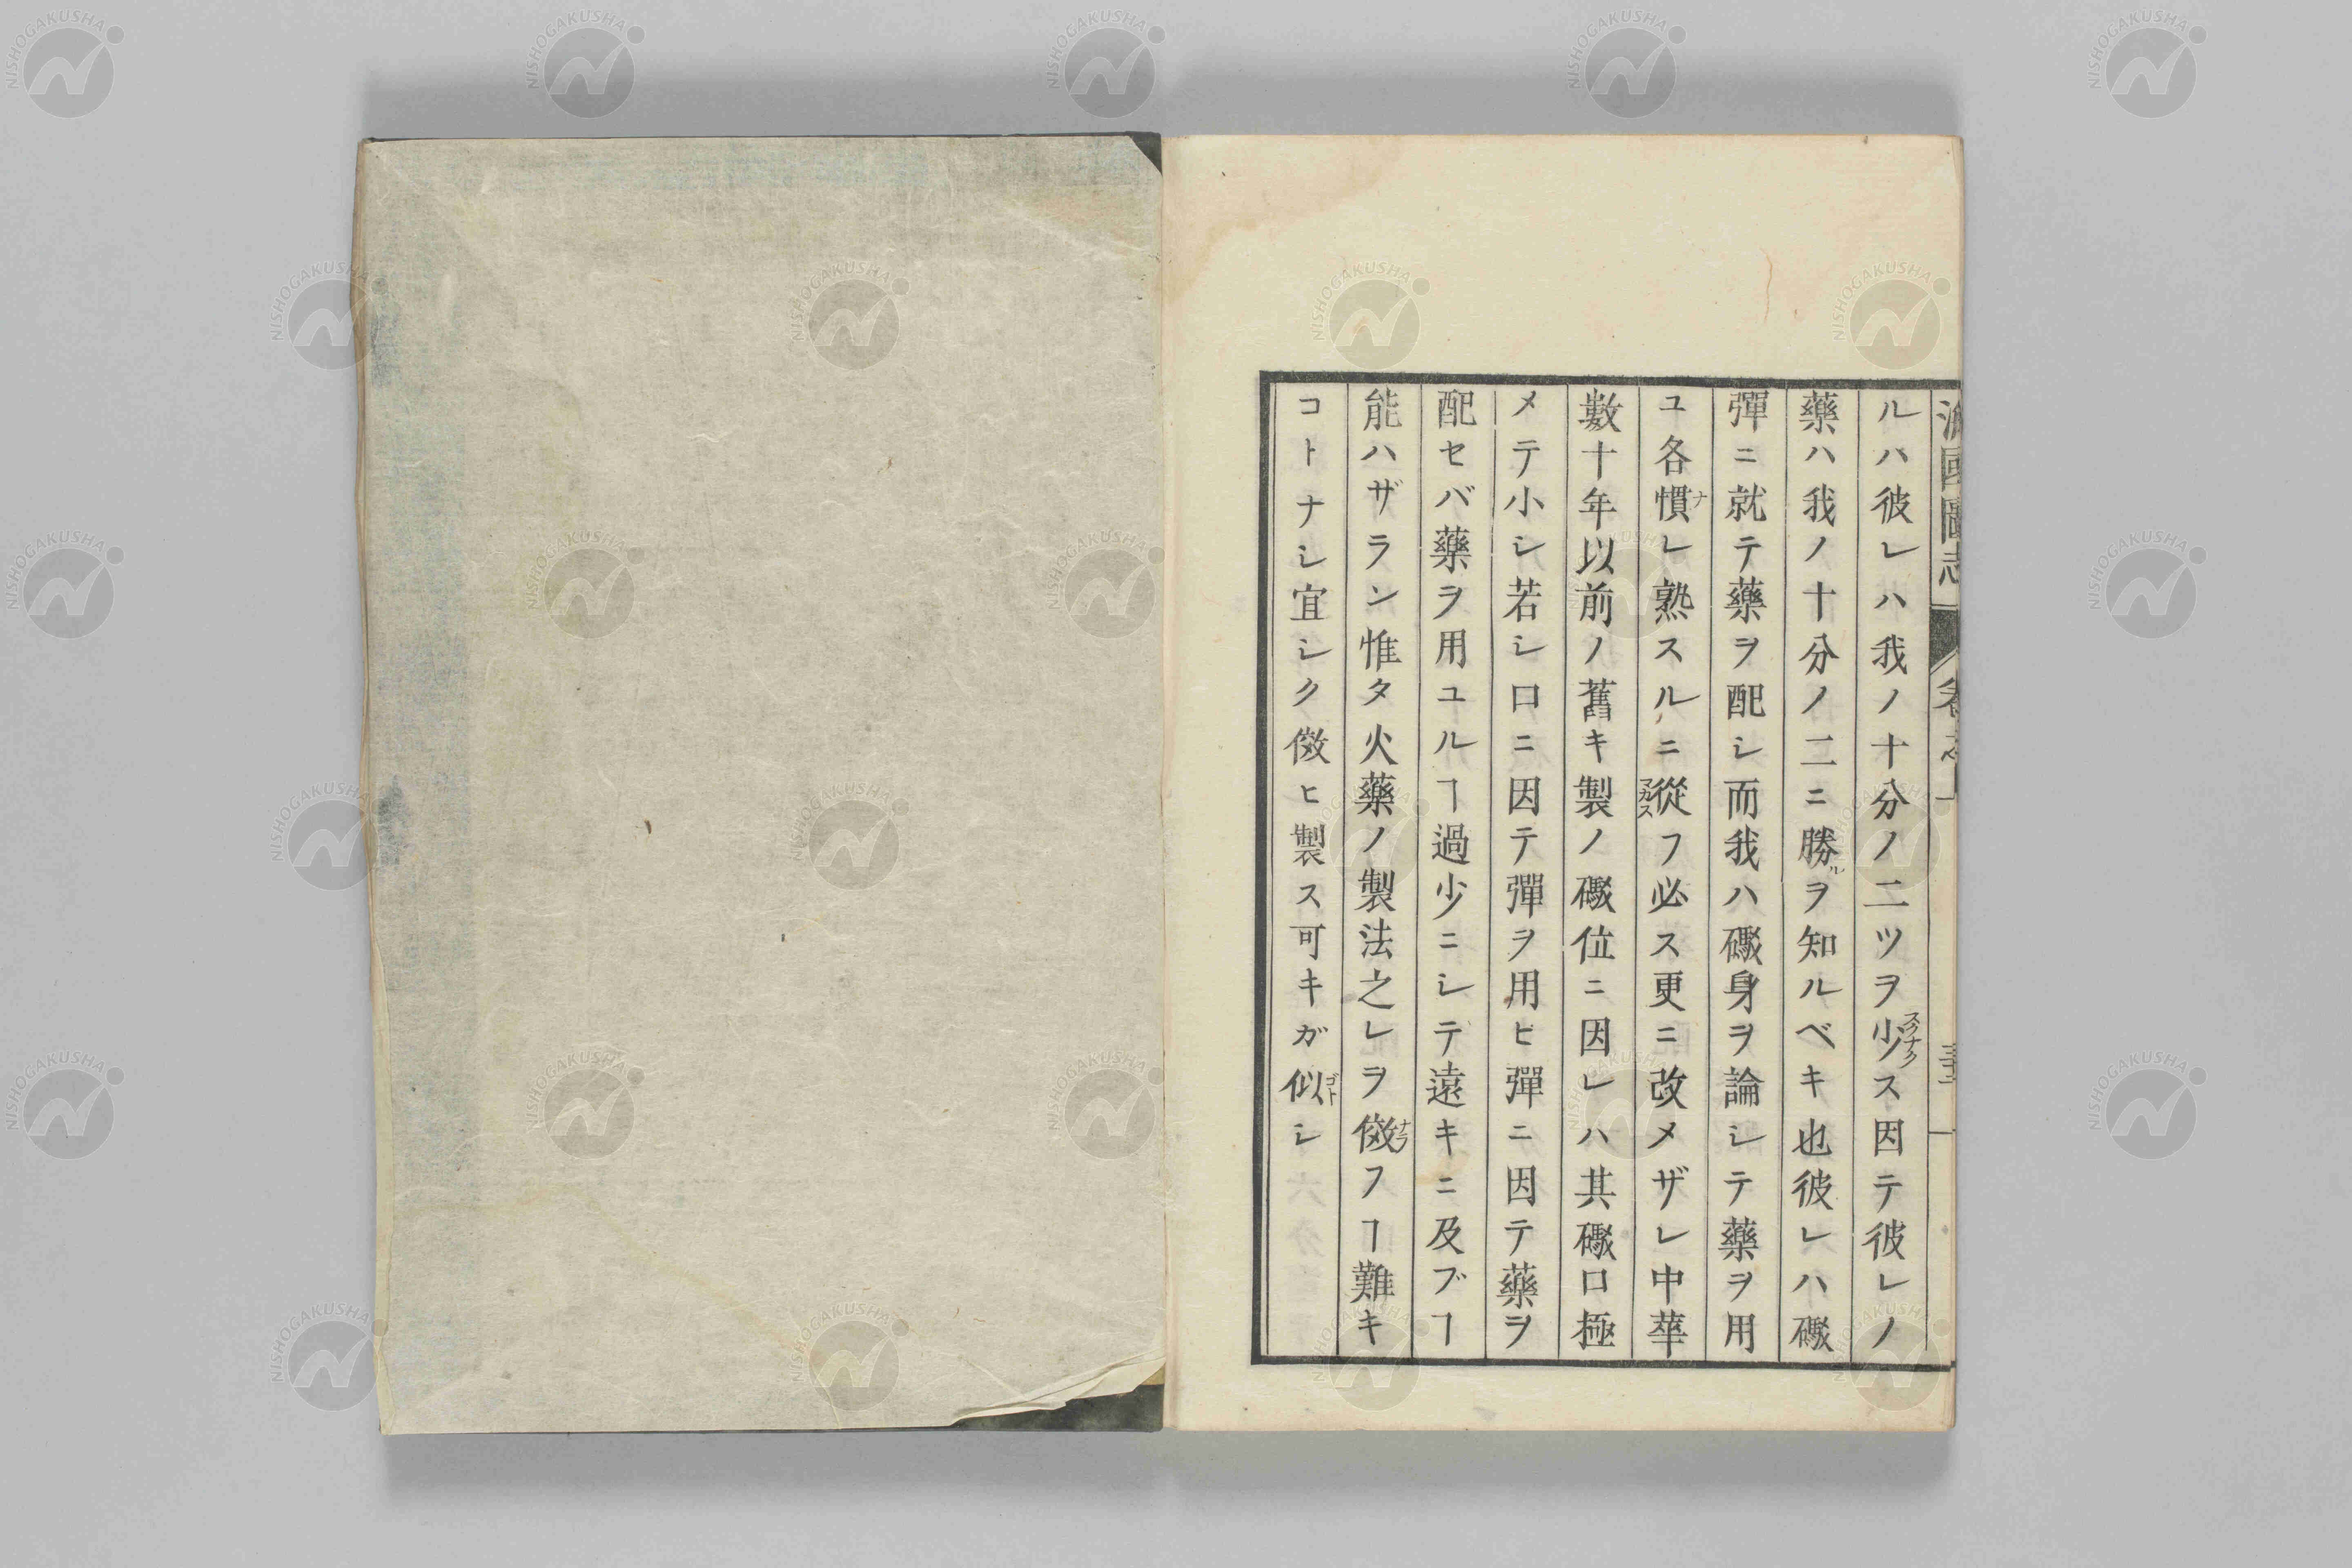 海國圖志 卷之十 三十二
ルハ彼レハ我ノ十分ノ二ツヲ少スクナクス因テ彼レノ
藥ハ我ノ十分ノ二ニ勝ルヲ知ルベキ也彼レハ礮
彈ニ就テ藥ヲ配シ而我ハ礮身ヲ論シテ藥ヲ用
ユ各慣ナレ熟スルニ從マカスフ必ス更ニ改メザレ中華
數十年以前ノ舊キ製ノ礮位ニ因レハ其礮口極
メテ小シ若シ口ニ因テ彈ヲ用ヒ彈ニ因テ藥ヲ
配セバ藥ヲ用ユルヿ過少ニシテ遠キニ及ブヿ
能ハザラン惟タ火藥ノ製法之レヲ傚ナラフヿ難キ
コトナシ宜シク傚ヒ製ス可キガ似ゴトシ
NISHOGAKUSHA